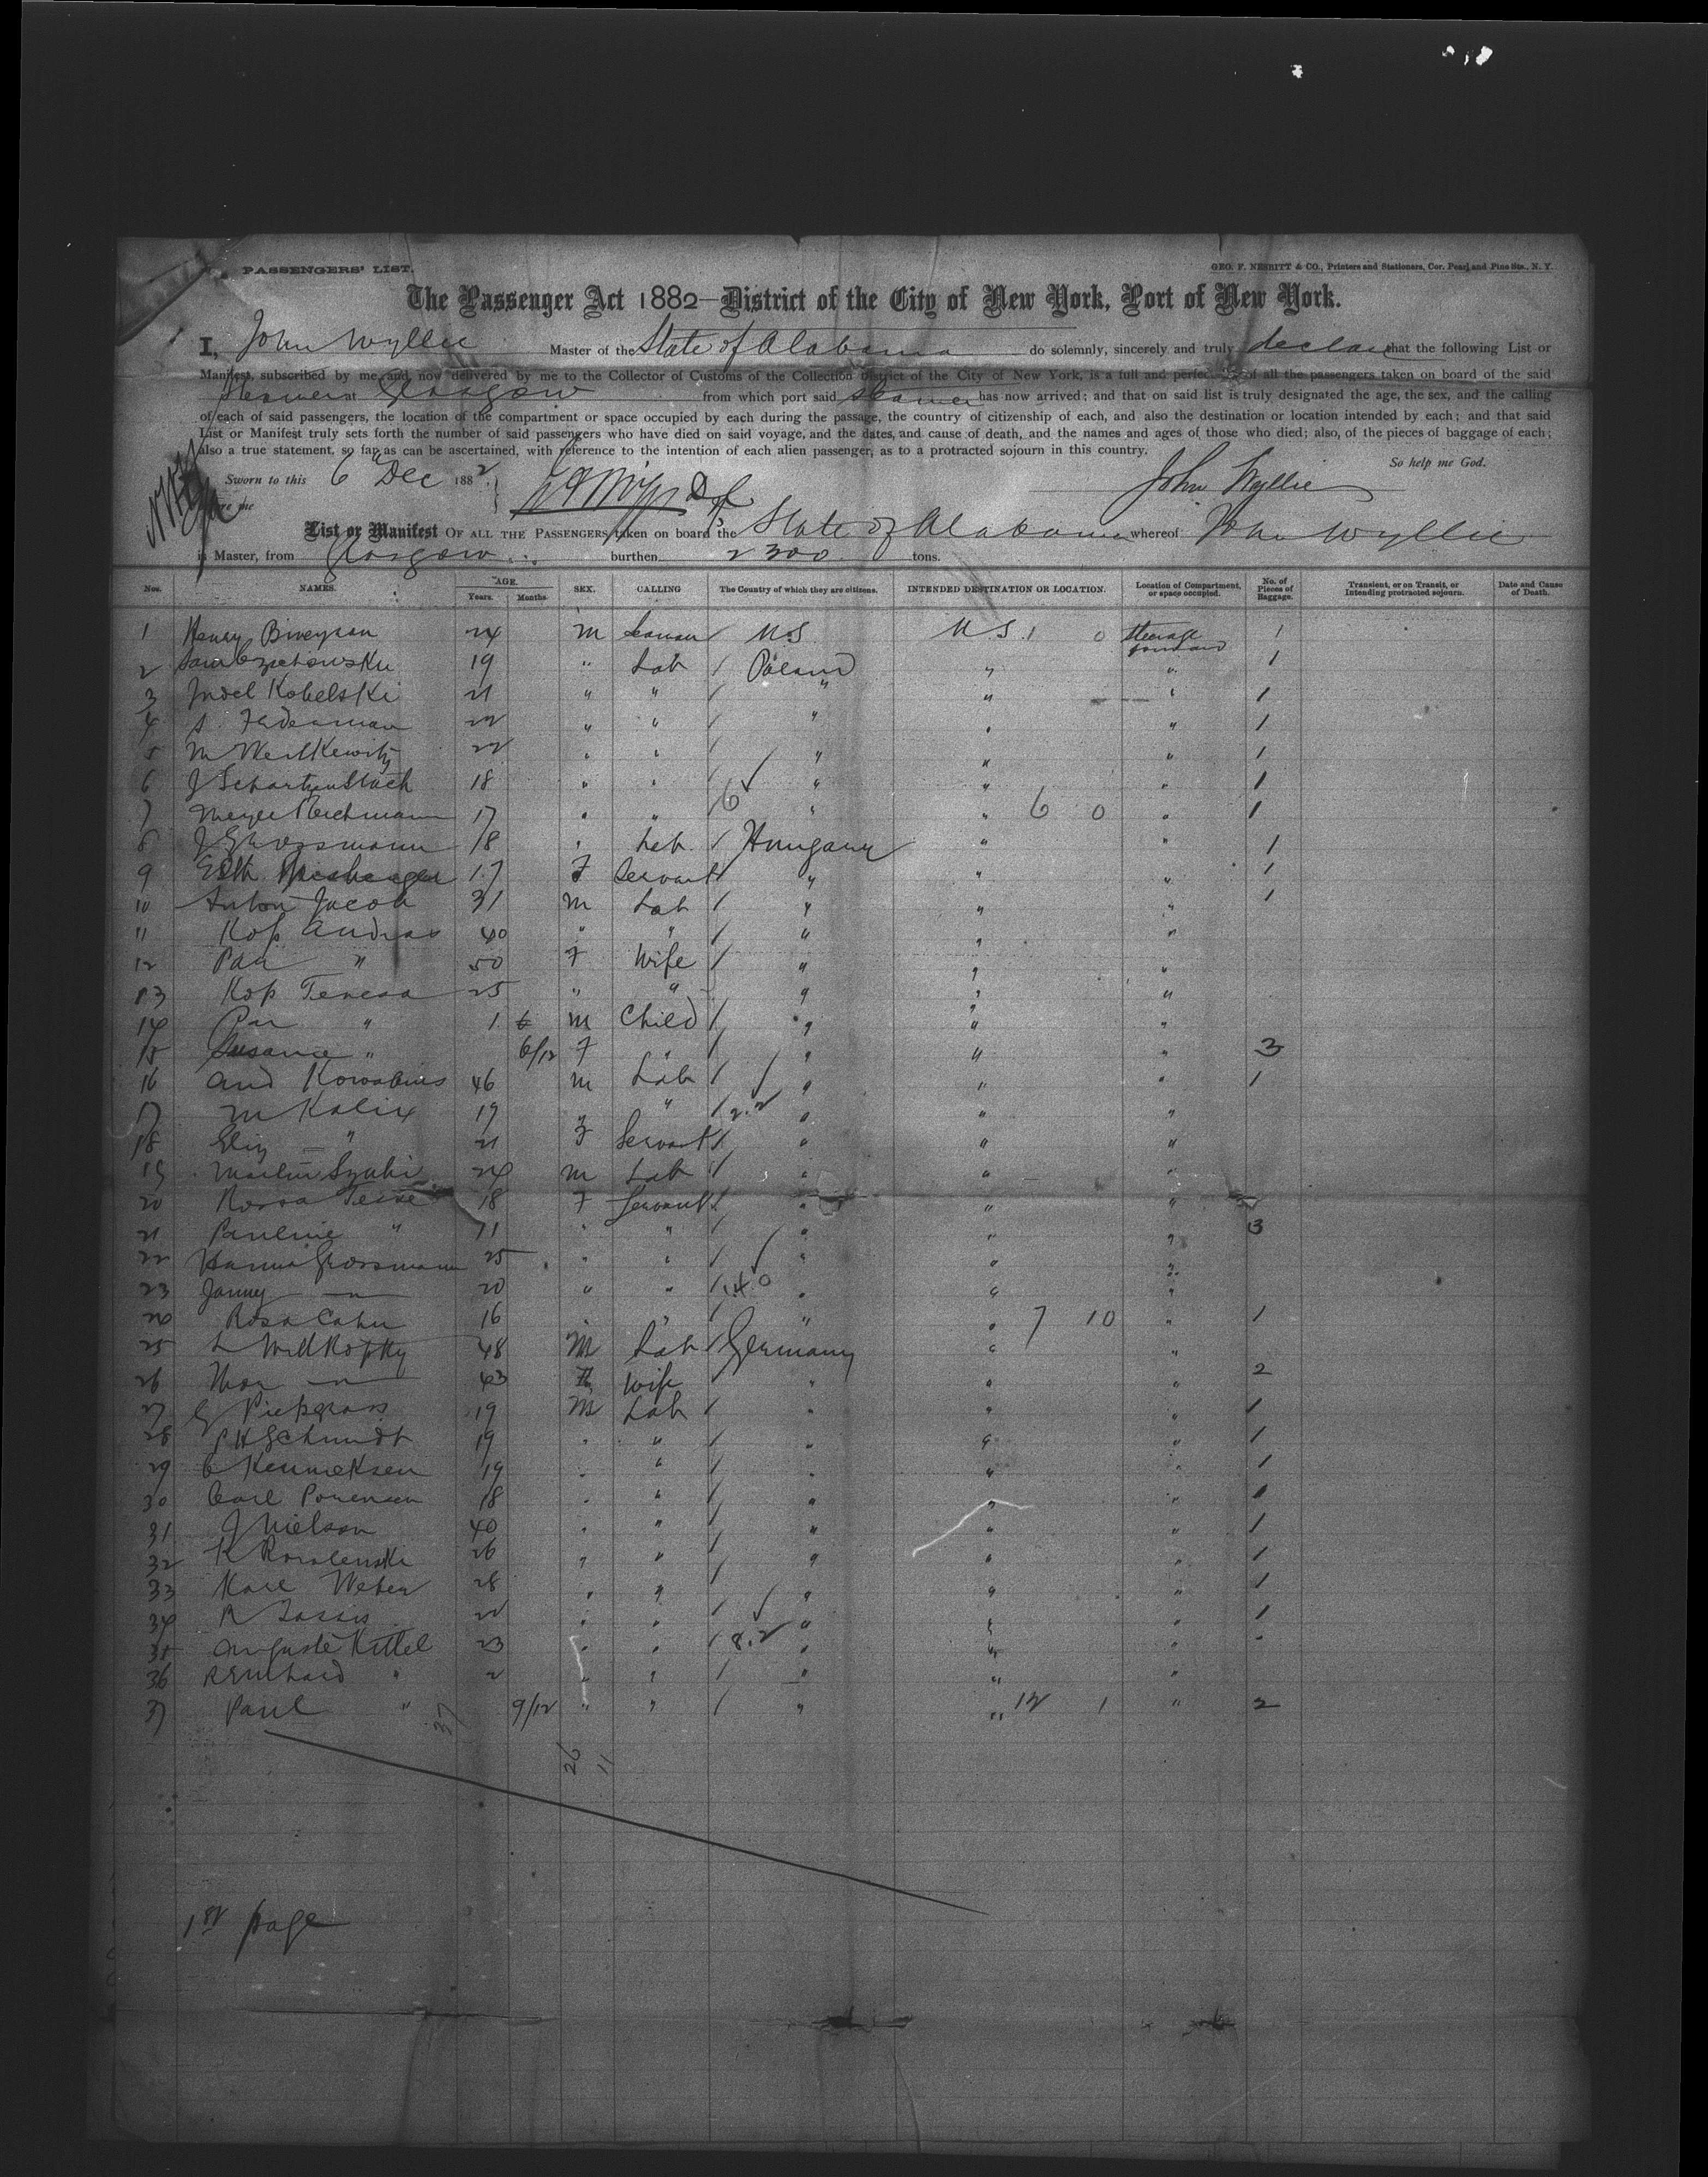 PASSENGERS' LIST.
GEO. F. NESBITT & CO., Printers and Stationers, Cor. Pearl and Pine Sts., N. Y.
The Passenger Act 1882—District of the City of New York, Port of New York.
I, John Wyllie Master of the State of Alabama do solemnly, sincerely and truly declare that the following List or
Manifest, subscribed by me, and now delivered by me to the Collector of Customs of the Collection District of the City of New York, is a full and perfect of all the passengers taken on board of the said
Steamer at Glasgow from which port said Steamer has now arrived; and that on said list is truly designated the age, the sex, and the calling
of each of said passengers, the location of the compartment or space occupied by each during the passage, the country of citizenship of each, and also the destination or location intended by each; and that said
List or Manifest truly sets forth the number of said passengers who have died on said voyage, and the dates, and cause of death, and the names and ages of those who died; also, of the pieces of baggage of each;
also a true statement, so far as can be ascertained, with reference to the intention of each alien passenger, as to a protracted sojourn in this country.
So help me God.
Sworn to this 6 Dec 1882
John Wyllie
me
List or Manifest OF ALL THE PASSENGERS taken on board the State of Alabama whereof John Wyllie
is Master, from Glasgow burthen 2300 tons.
Nos. NAMES. AGE. Years. Months. SEX. CALLING The Country of which they are citizens. INTENDED DESTINATION OR LOCATION. Location of Compartment, or space occupied. No. of Pieces of Baggage. Transient, or on Transit, or Intending protracted sojourn. Date and Cause of Death.
1 Henry 24 m Seaman / U.S U S. 1 0 Steerage forward 1
2 19 " Lab / Poland " " 1
3 Kobelski 21 " " / " " " 1
4 S. Federman 22 " " / " " " 1
5 M 22 " " / " " " 1
6 J 18 " " / " " " 1
7 Meyer Reichmann 17 " " 6 " " 6 0 " 1
8 J Grossmann 18 " Lab / Hungary " " 1
9 17 F Servant / " " " 1
10 Anton Jacob 31 m Lab / " " " 1
11 Kop Andras 40 " " / " " "
12 Pau " 50 F Wife / " " "
13 Kop Teresa 25 " " " " "
14 " 1 6 m Child / " " "
15 Susanne " 6/12 F " / " " " 3
16 And 46 m Lab / " " " 1
17 M Kalix 19 " / 2.2 " " "
18 Eliz — " 21 F Servant / " " "
19 Martin 24 m Lab / " " "
20 Rosa 18 F Servant / " " "
21 Pauline " 11 " " / " " " 3
22 Hanna Grossmann 25 " " / " " "
23 Janny — " — 20 " " / 14.0 " " "
24 Rosa Cahn 16 " " / " " 7 10 " 1
25 L 48 M Lab / Germany " "
26 — " — 43 F Wife / " " " 2
27 Piepgrass 19 M Lab / " " " 1
28 P H Schmidt 19 " " / " " " 1
29 C 19 " " / " " " 1
30 Carl 18 " " / " " " 1
31 J Nielson 40 " " / " " " 1
32 K 26 " " / " " " 1
33 Karl Weber 28 " " / " " " 1
34 R 22 " " / " " " 1
35 Auguste Kittel 23 " " / 8.2 " " "
36 Reinhard " 2 " " / " " "
37 Paul " 9/12 " " / " " 12 1 " 2
37
26 11
1st page